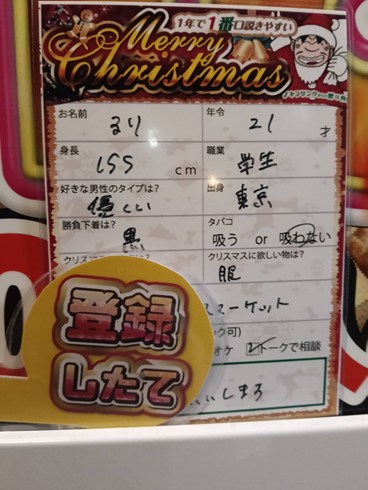 1年で1番口説きやすい
Merry
Christmas
お名前 るり 年令 21 才
身長 155 cm 職業 学生
好きな男性のタイプは? 優しい 出身 東京
勝負下着は? 黒 タバコ 吸う or 吸わない
クリスマスに欲しい物は? 服
マーケット
ク可)
オケ トークで相談
登録
したて
しまう